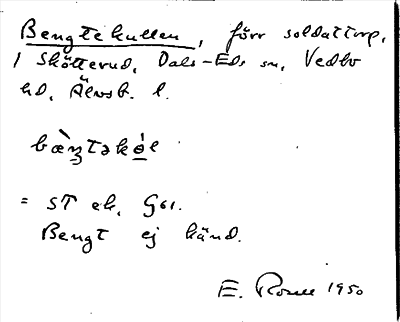 Bengtekullen, förr soldattorp,
/ Skötterud, Dals-Eds sn, Vedbo
hd, Älvsb. l.
bæ̀ŋtəkɵ́l
= ST ek. G61.
Bengt ej känd.
E. 1950